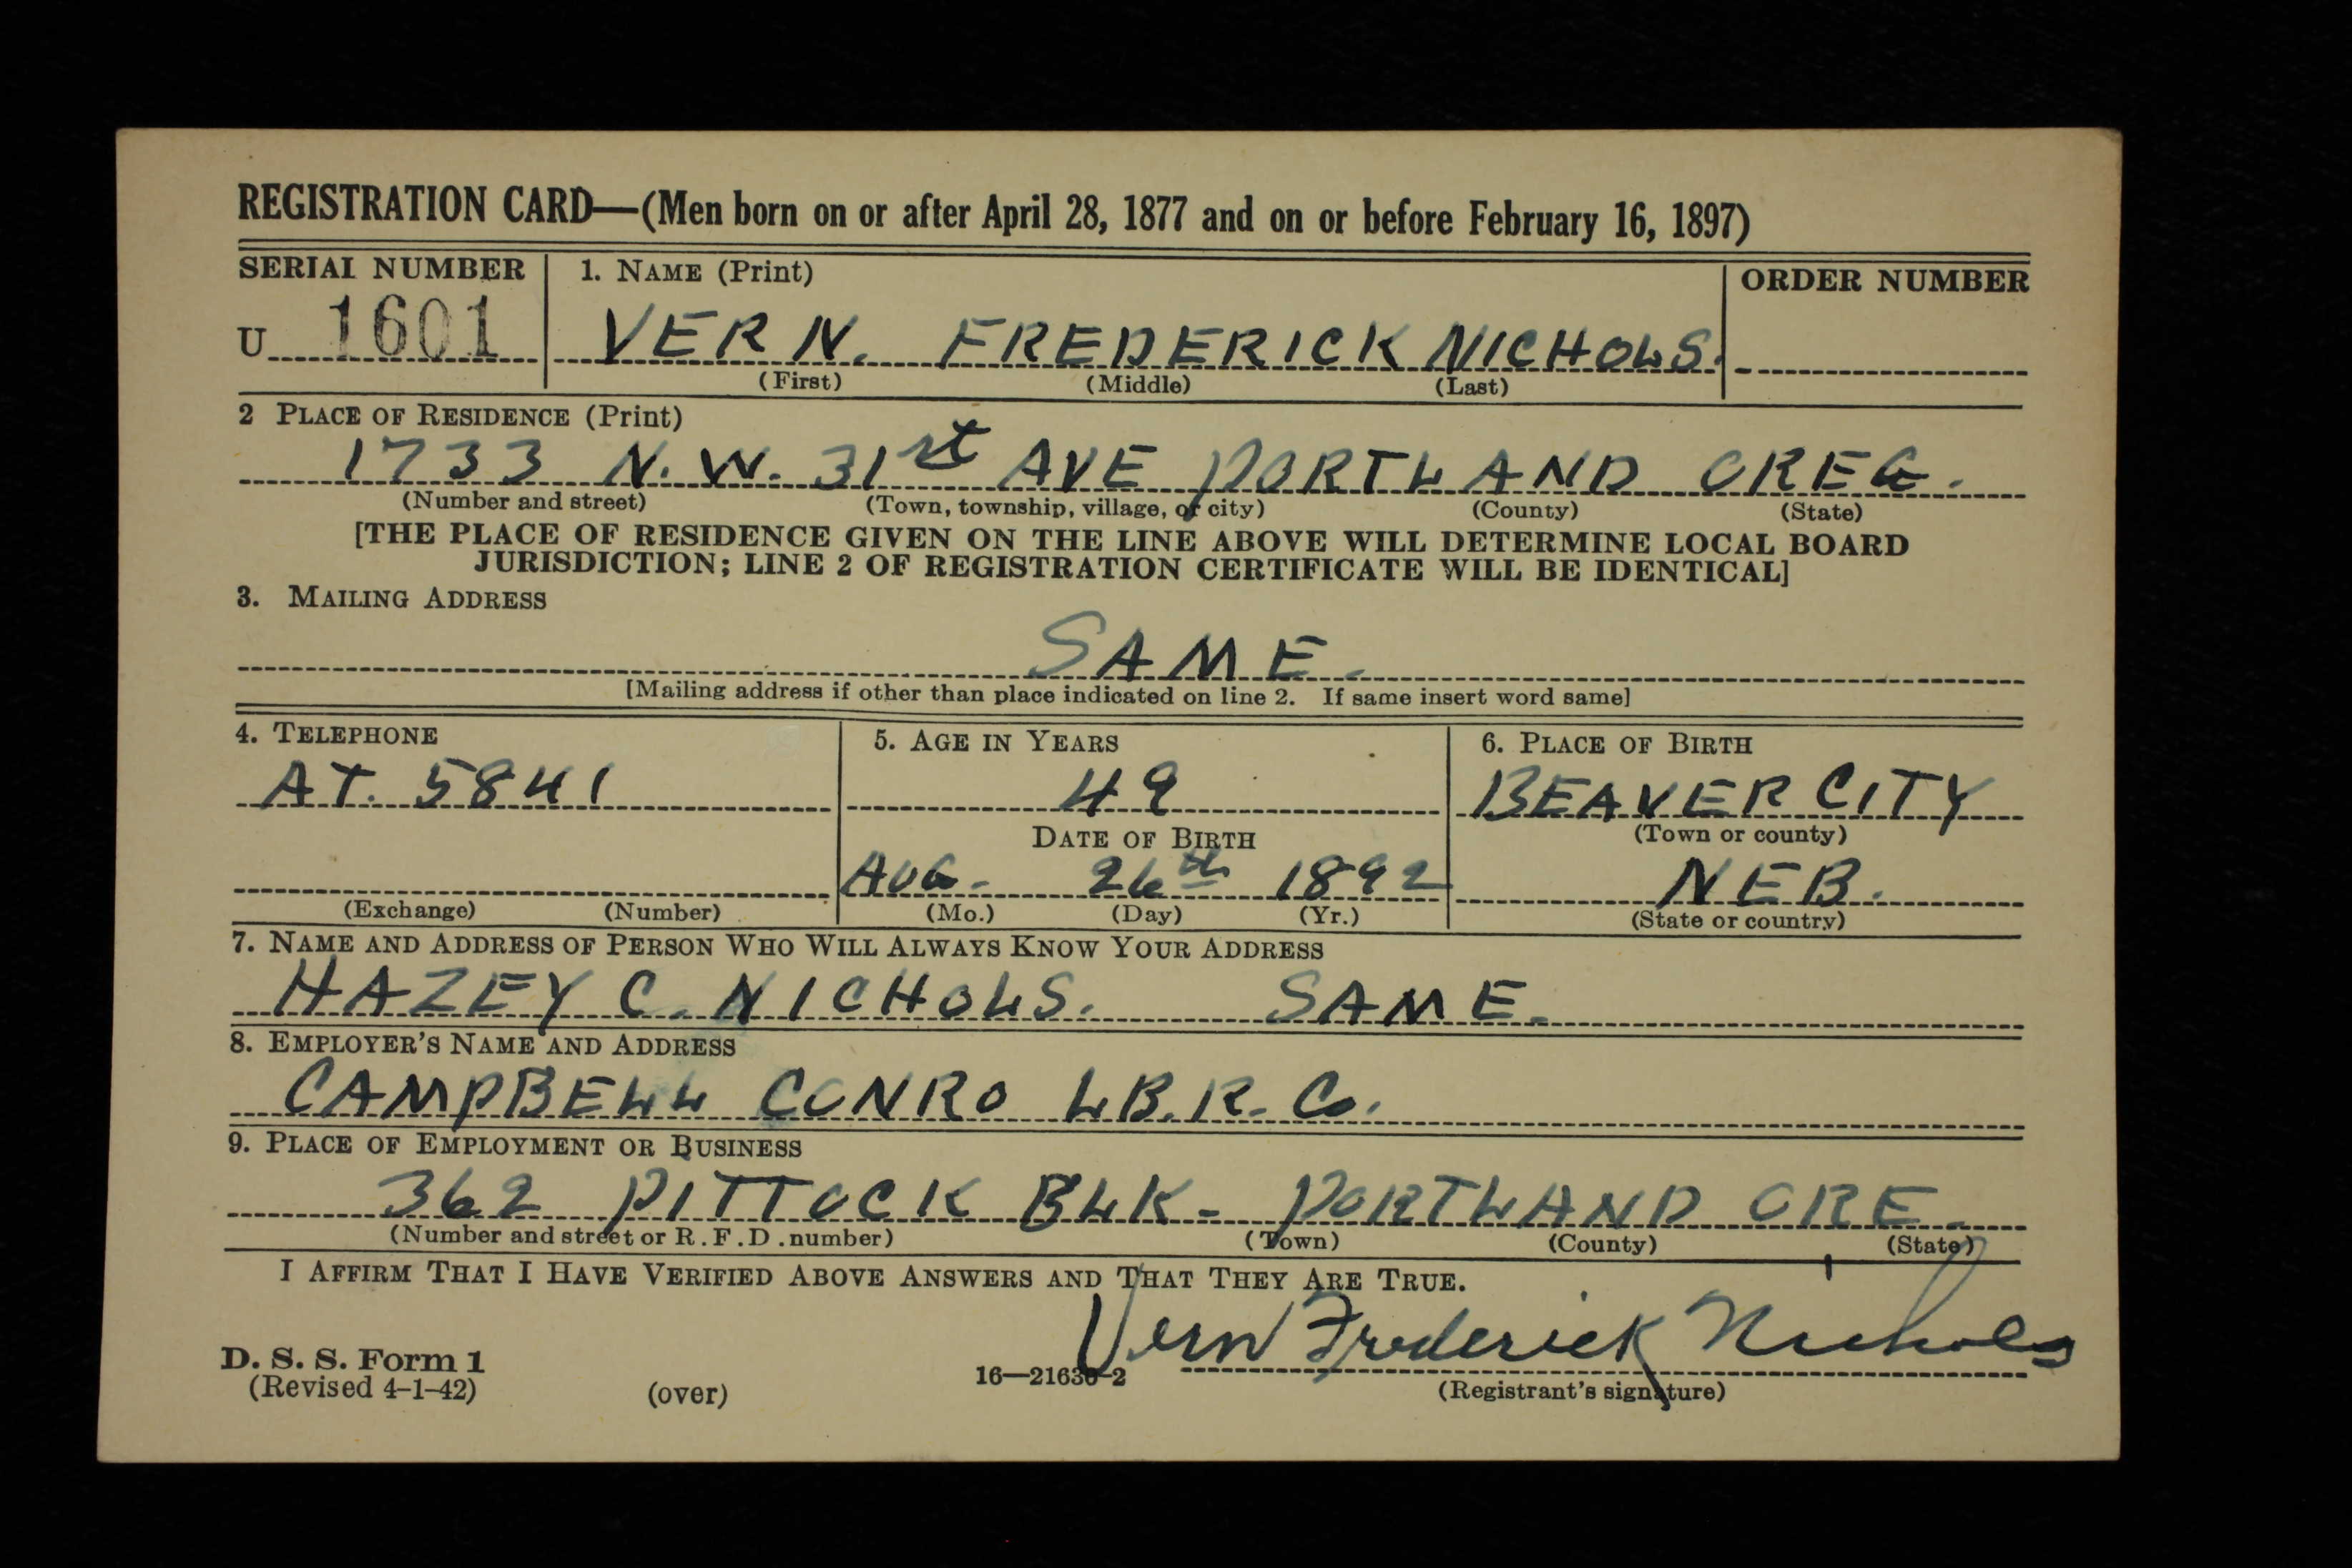 REGISTRATION CARD—(Men born on or after April 28, 1877 and on or before February 16, 1897)
SERIAL NUMBER 1. NAME (Print) ORDER NUMBER
U 1601 VERN. FREDERICK NICHOLS.
(First) (Middle) (Last)
2 PLACE OF RESIDENCE (Print)
1733 N.W. 31st AVE PORTLAND OREG.
(Number and street) (Town, township, village, or city) (County) (State)
[THE PLACE OF RESIDENCE GIVEN ON THE LINE ABOVE WILL DETERMINE LOCAL BOARD
JURISDICTION; LINE 2 OF REGISTRATION CERTIFICATE WILL BE IDENTICAL]
3. MAILING ADDRESS
SAME.
[Mailing address if other than place indicated on line 2. If same insert word same]
4. TELEPHONE 5. AGE IN YEARS 6. PLACE OF BIRTH
AT. 5841 49 BEAVER CITY
DATE OF BIRTH (Town or county)
AUG. 26th 1892 NEB.
(Exchange) (Number) (Mo.) (Day) (Yr.) (State or country)
7. NAME AND ADDRESS OF PERSON WHO WILL ALWAYS KNOW YOUR ADDRESS
HAZEY C. NICHOLS. SAME.
8. EMPLOYER'S NAME AND ADDRESS
CAMPBELL CONRO LB.R. Co.
9. PLACE OF EMPLOYMENT OR BUSINESS
362 PITTOCK BLK- PORTLAND ORE.
(Number and street or R.F.D. number) (Town) (County) (State)
I AFFIRM THAT I HAVE VERIFIED ABOVE ANSWERS AND THAT THEY ARE TRUE.
Vern Frederick Nichols
D. S. S. Form 1
(Revised 4-1-42) (over) 16—21630-2 (Registrant's signature)